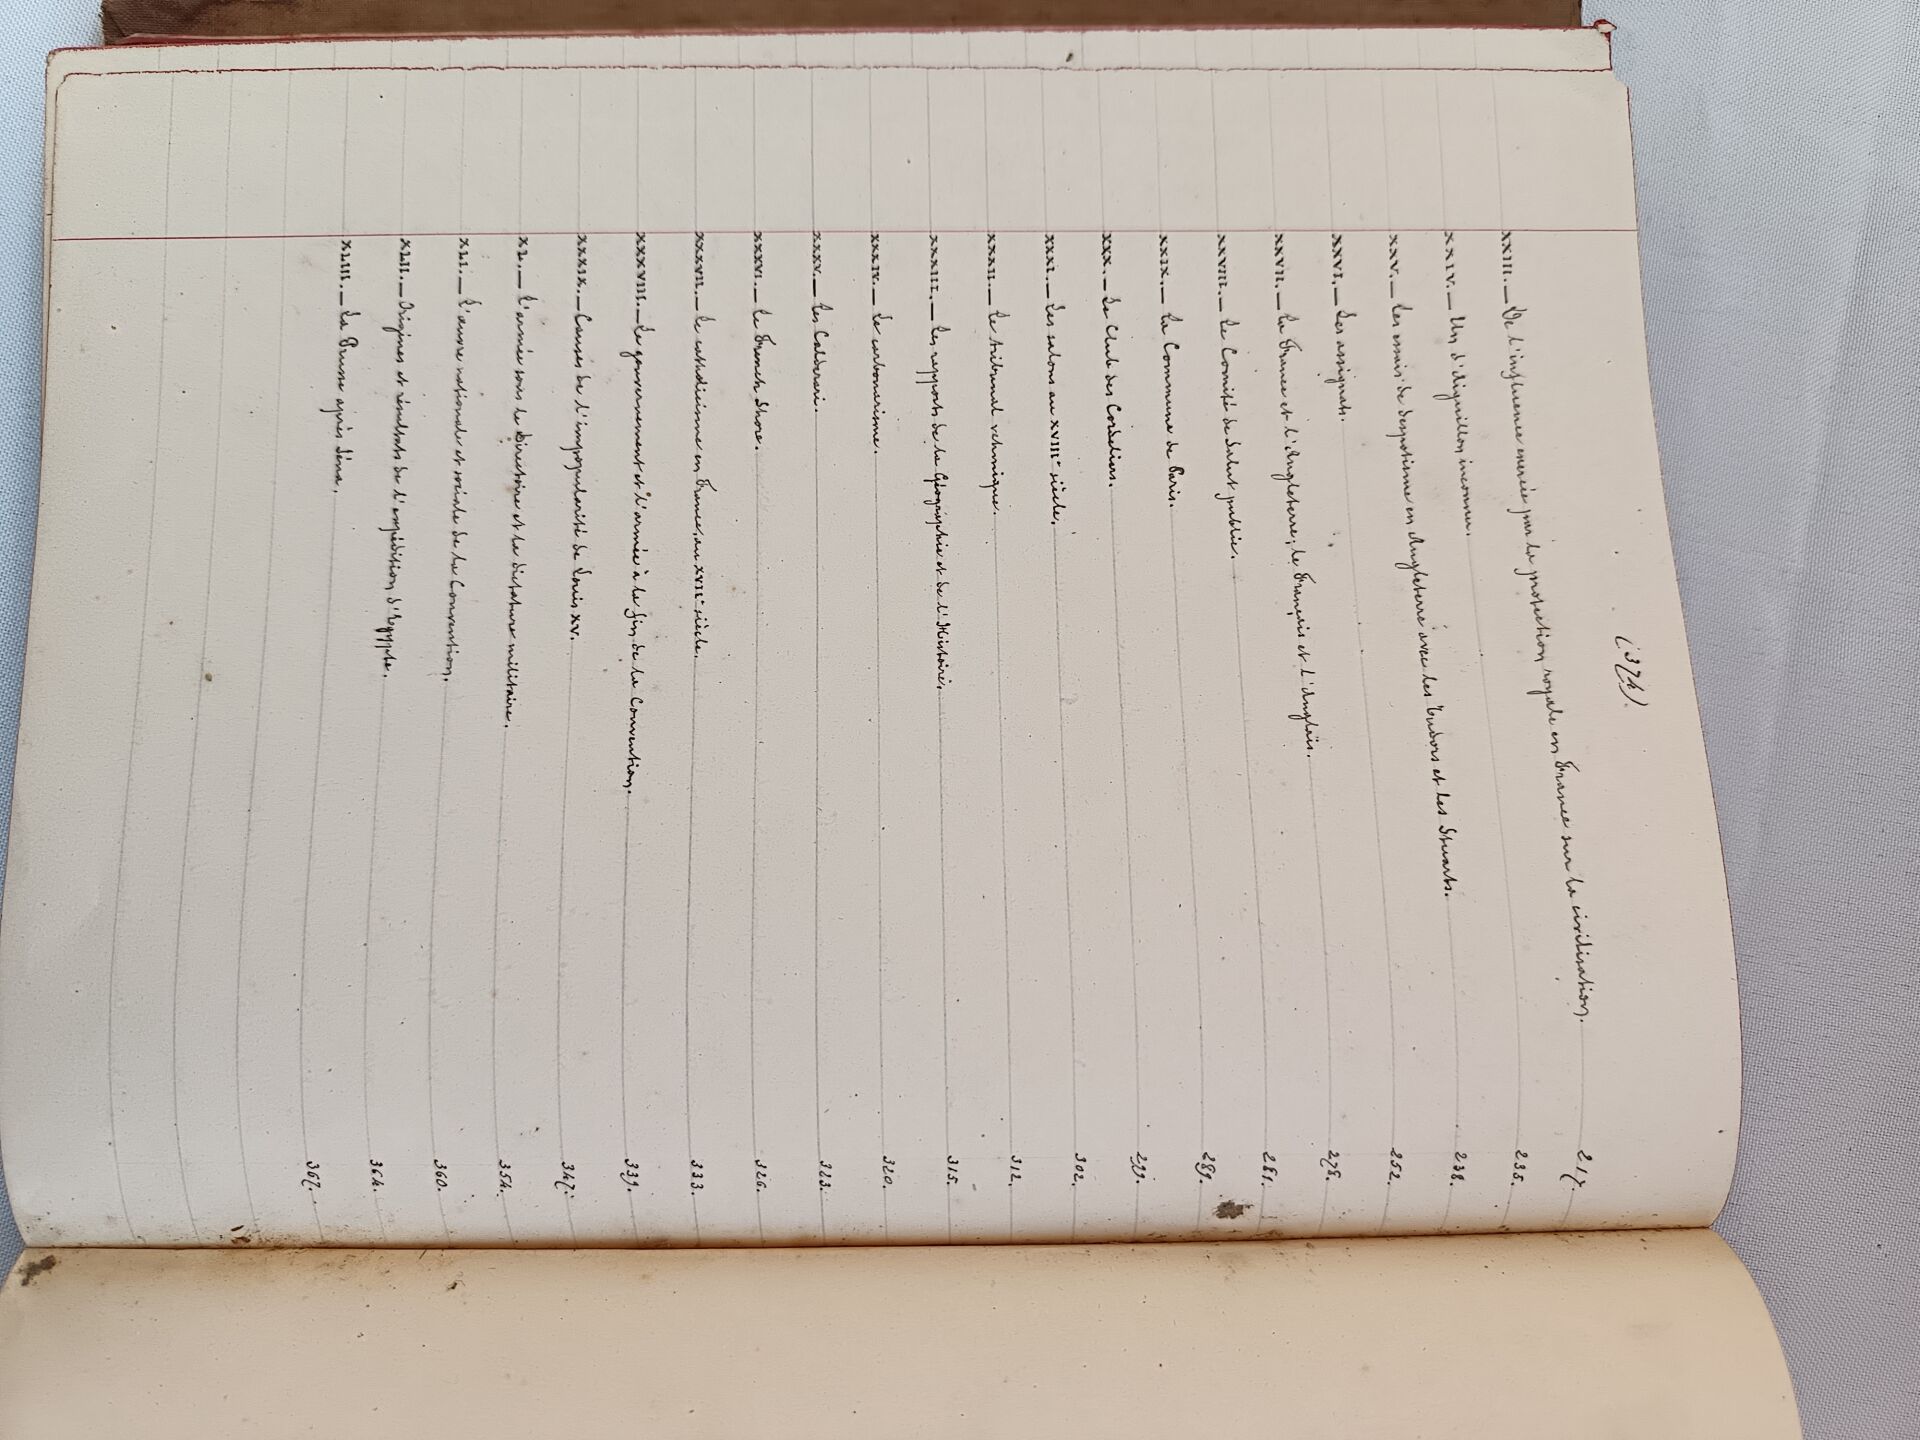 (374).
XXIII. — De l'influence exercée par la protection royale en France sur la civilisation. 217.
XXIV. — Un d'Aiguillon inconnu. 235.
XXV. — Les essais de despotisme en Angleterre avec les Tudors et les Stuarts. 238.
XXVI. — Les assignats. 252.
XXVII. — La France et l'Angleterre; le Français et l'Anglais. 278.
XXVIII. — Le Comité de Salut public. 281.
XXIX. — La Commune de Paris. 289.
XXX. — Le Club des Cordeliers. 299.
XXXI. — Les salons au XVIIIe siècle. 302.
XXXII. — Le tribunal vehmique. 312.
XXXIII. — Les rapports de la Géographie et de l'Histoire. 315.
XXXIV. — Le carbonarisme. 320.
XXXV. — Les Calderari. 323.
XXXVI. — Le French Shore. 326.
XXXVII. — Le catholicisme en France, au XVIIe siècle. 333.
XXXVIII. — Le gouvernement et l'armée à la fin de la Convention. 339.
XXXIX. — Causes de l'impopularité de Louis XV. 347.
XL. — L'armée sous le Directoire et la dictature militaire. 354.
XLI. — L'œuvre nationale et sociale de la Convention. 360.
XLII. — Origines et résultats de l'expédition d'Egypte. 364.
XLIII. — La Prusse après Iéna. 367.